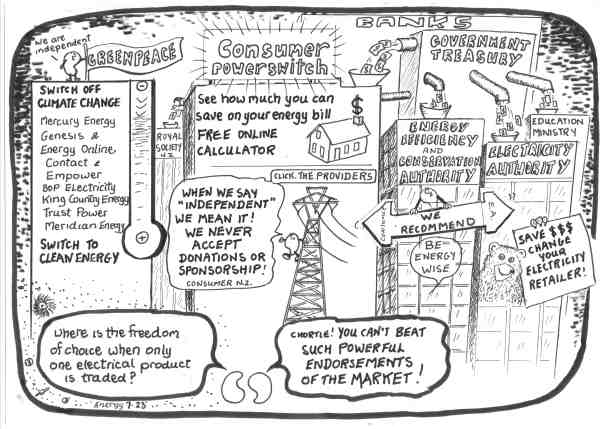 We are
independent
GREENPEACE
SWITCH OFF
CLIMATE CHANGE
Mercury Energy
Genesis &
Energy Online,
Contact &
Empower
BOP Electricity
King Country Energy
Trust Power
Meridian Energy
SWITCH TO
CLEAN ENERGY
ROYAL
SOCIETY
N.Z.
Consumer
Powerswitch
See how much you can
save on your energy bill
$
FREE ONLINE
CALCULATOR
CLICK THE PROVIDERS
WHEN WE SAY
"INDEPENDENT"
WE MEAN IT!
WE NEVER
ACCEPT
DONATIONS OR
SPONSORSHIP!
CONSUMER N.Z.
BANKS
GOVERNMENT
TREASURY
ENERGY
EFFICIENCY
AND
CONSERVATION
AUTHORITY
EDUCATION
MINISTRY
ELECTRICITY
AUTHORITY
CONSUMER
WE
RECOMMEND
E.A.
BE
ENERGY
WISE
SAVE $$$
CHANGE
YOUR
ELECTRICITY
RETAILER!
Where is the freedom
of choice when only
one electrical product
is traded?
CHORTLE! YOU CAN'T BEAT
SUCH POWERFUL
ENDORSEMENTS
OF THE MARKET!
Energy 7.23